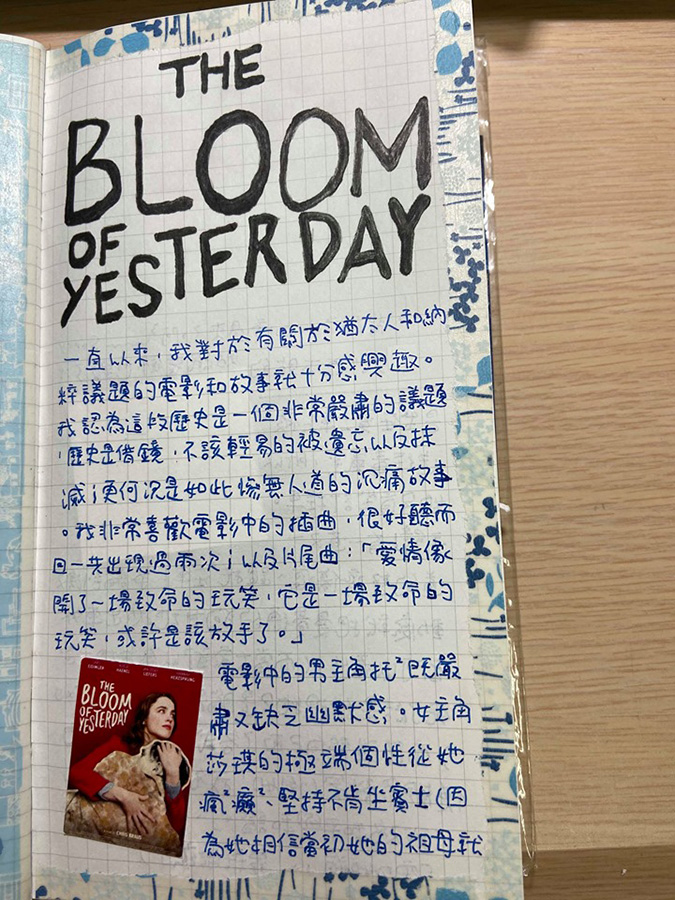 THE
BLOOM
OF
YESTERDAY
一直以來，我對於有關於猶太人和納
粹議題的電影和故事就十分感興趣。
我認為這段歷史是一個非常嚴肅的議題
，歷史是借鏡，不該輕易的被遺忘以及抹
滅；更何況是如此慘無人道的沉痛故事
。我非常喜歡電影中的插曲，很好聽而
且一共出現過兩次；以及片尾曲：「愛情像
開了一場致命的玩笑，它是一場致命的
玩笑，或許是該放手了。」
電影中的男主角托²既嚴
肅又缺乏幽默感。女主角
莎琪的極端個性從她
瘋²癲²、堅持不肯坐賓士(因
為她相信當初她的祖母就
THE
BLOOM
OF
YESTERDAY